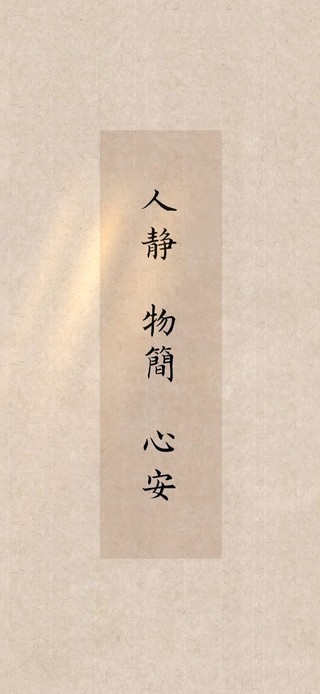 人静 物簡 心安